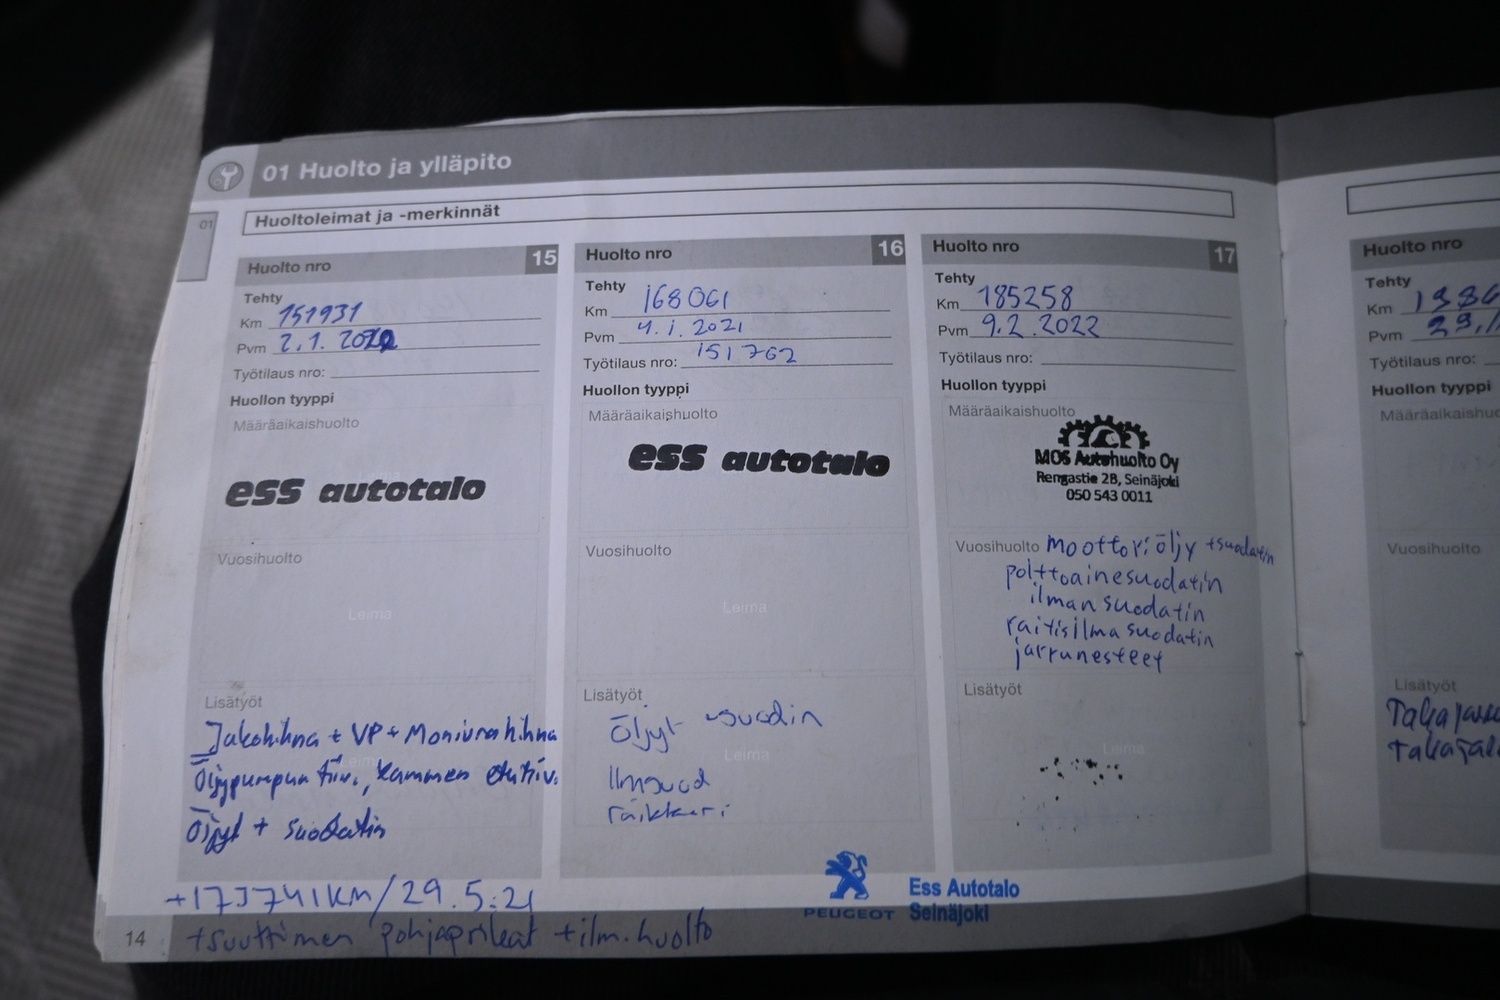 01 Huolto ja ylläpito
01
Huoltoleimat ja -merkinnät
Huolto nro 15
Tehty
Km 151931
Pvm 2.1.
Työtilaus nro:
Huollon tyyppi
Määräaikaishuolto
Leima
ess autotalo
Vuosihuolto
Leima
Lisätyöt
Jakohihna + VP + Moniurahihna
Leima
Öljypumpun tiiv., kammen etutiiv.
Öljyt + suodatin
Huolto nro 16
Tehty
Km 168061
Pvm 4.1.2021
Työtilaus nro: 151762
Huollon tyyppi
Määräaikaishuolto
ess autotalo
Vuosihuolto
Leima
Lisätyöt
Öljyt
Leima
Ilmsuod
raikkari
Huolto nro 17
Tehty
Km 185258
Pvm 9.2.2022
Työtilaus nro:
Huollon tyyppi
Määräaikaishuolto
MOS Autohuolto Oy
Rengastie 28, Seinäjoki
050 543 0011
Vuosihuolto moottoriöljy + suodatin
polttoainesuodatin
ilmansuodatin
raitisilmasuodatin
jarrunesteet
Lisätyöt
Leima
Huolto nro
Tehty
Km
Pvm
Työtilaus nro:
Huollon tyyppi
Määräaikaishuo
Vuosihuolto
Lisätyöt
+173741km/29.5.21
+suuttimen pohjaprikat + ilm.huolto
PEUGEOT
Ess Autotalo
Seinäjoki
14